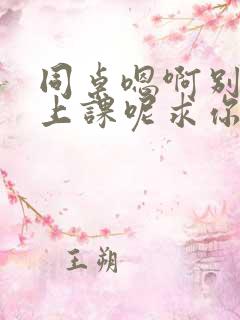 同桌嗯啊别
上课呢求你
王朔